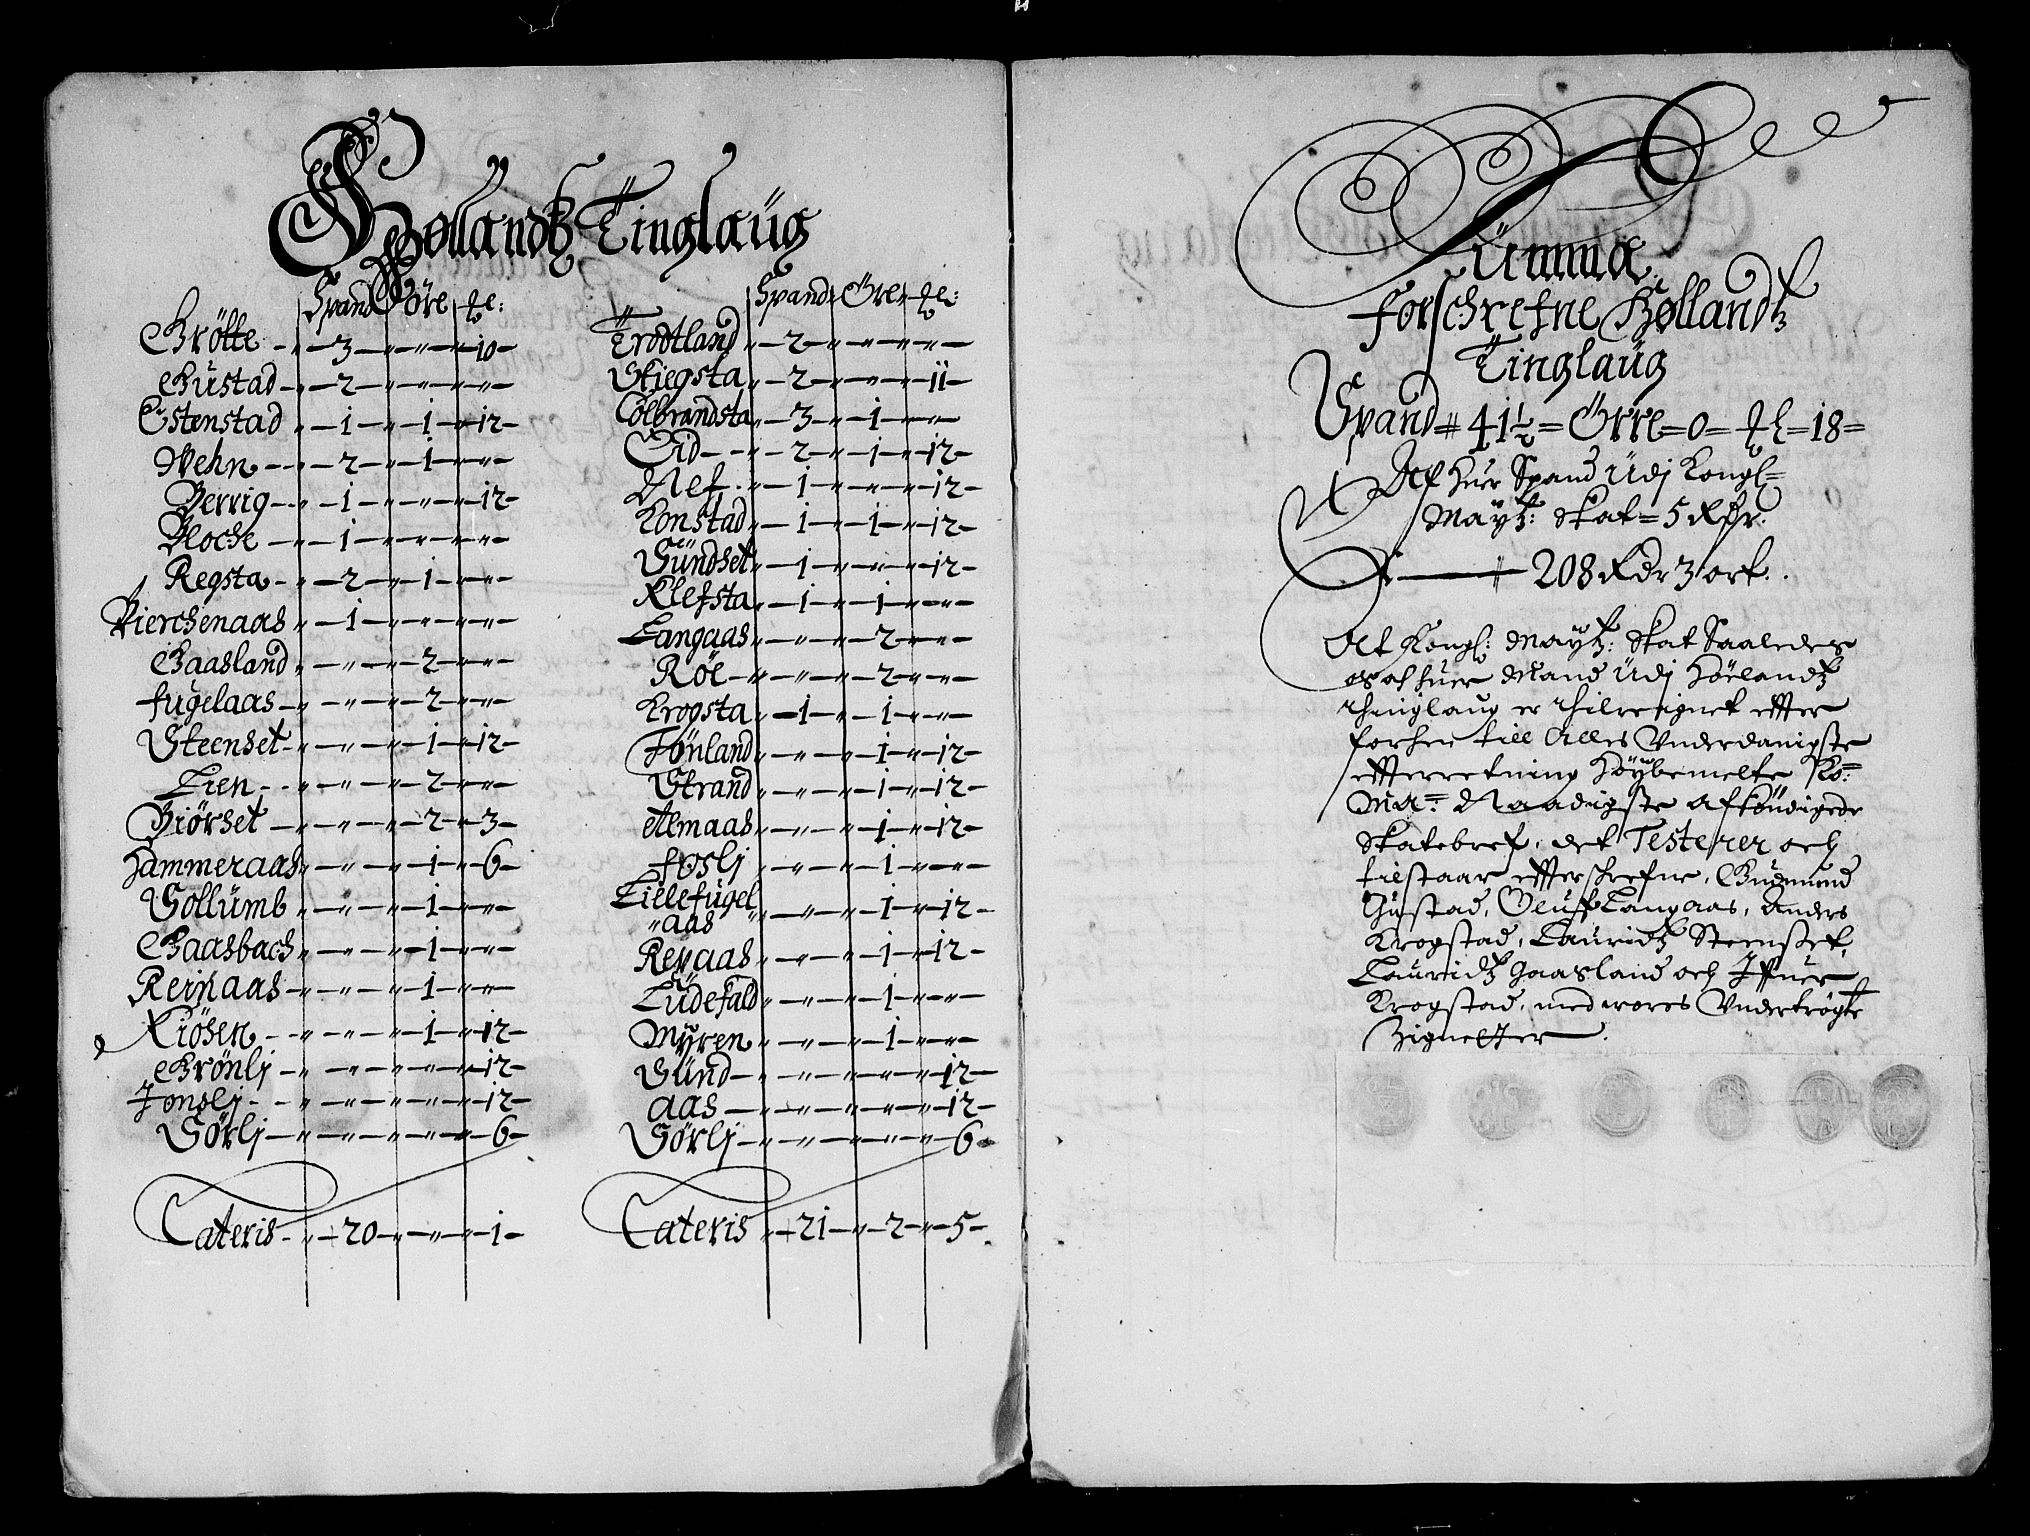 Høllandtz Tinglaüg
Spand Öre
Grötte 3 " 10
Güstad 2 " "
Estenstad 1 1 12
Wehn 2 1 "
Berrig 1 " 12
Bloche 1 " "
Regsta 2 1 "
Bierchenaas 1 " "
Gaasland " 2 "
fugelaas " 2 "
Steenset " 1 12
Lien " 2 "
Biörset " 2 3
Hammeraas " 1 6
Sollümb " 1 "
Gaasbach " 1 "
Reinaas " 1 "
Kiösen " 1 12
Grönlj " " 12
Jonslj " " 12
Sörlj " " 6
Lateris 20 " 1
Spand Öre
Trotland 2 " "
Stiegsta 2 " 11
Colbrandsta 3 1 "
Eid 2 1 12
Nef 1 " 12
Konstad 1 1 12
Sündset 1 " 12
Klefsta 1 1 "
Langaas " 2 "
Röe " 2 "
Krogsta 1 1 "
Fönland " 1 12
Strand " 1 12
Almaas " 1 12
foslj " 1 "
Lillefugel
"aas " 1 12
Repaas " 1 12
Lüdefald " 1 "
Myren " 1 "
Sünd " " 12
aas " " 12
Sörlj " " 6
Lateris 21 2 5
Sümma
forschrefne Høllandtz
Tinglaüg
Spand 41½ = Örre = 0 = = 18 =
Af huer Spand Üdj Kongl=
Maytz: Skat = 5 Rdr.
Er 208 Rdr 3 ort.
At Kongl: Maytz: Skat Saaledes
af huer Mand Üdj Hörlandtz
Thinglaug er thilreignet effter
forhen till Alles Vnderdanigste
effterretning Höybemelte Ko:
Ma: Naadigste afkündigede
Skatebref, det Testerer och
tilstaar effterschrefne, Gudmund
Gustad, Oluff Langaas, Anders
Krogstad, Lauridtz Steenset,
Lauridtz Gaasland och Iffuer
Krogstad, med wores Vndertrögte
Zignetter.